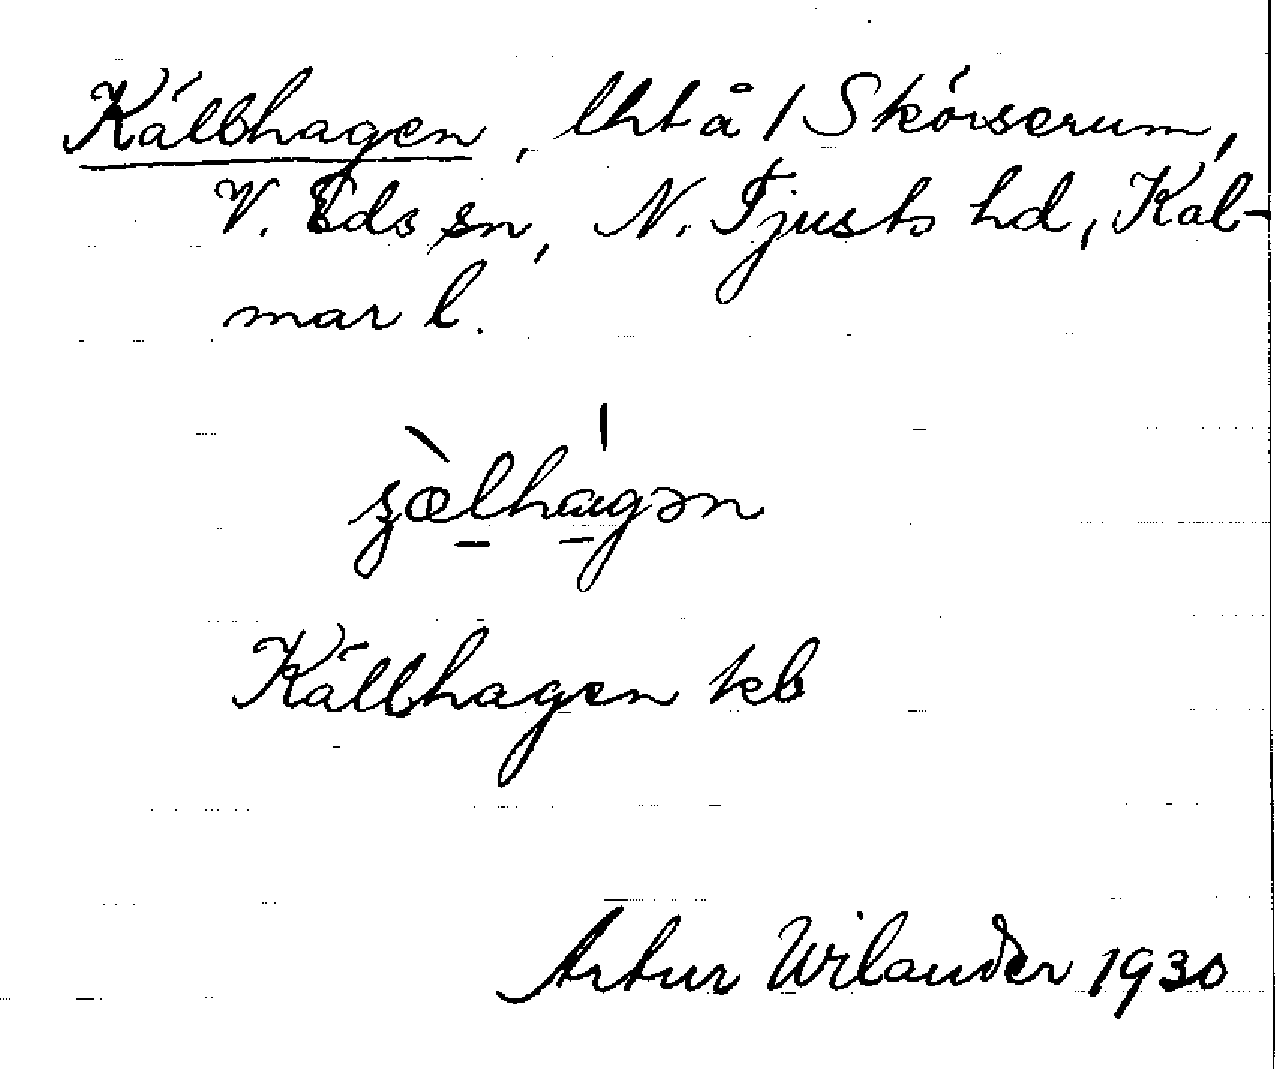 Källhagen, lht å 1 Skörserum,
V. Eds sn, N. Tjusts hd, Kal-
mar l.
Källhagen kb
Artur Wilander 1930